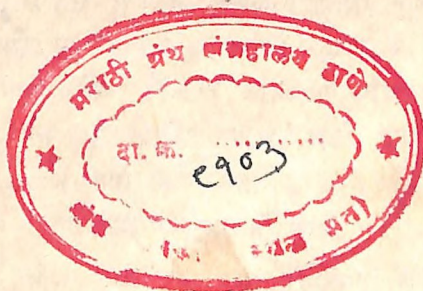 मराठी ग्रंथ संग्रहालय ठाणे
दा. क्र. ............
९१०३
प्रत)